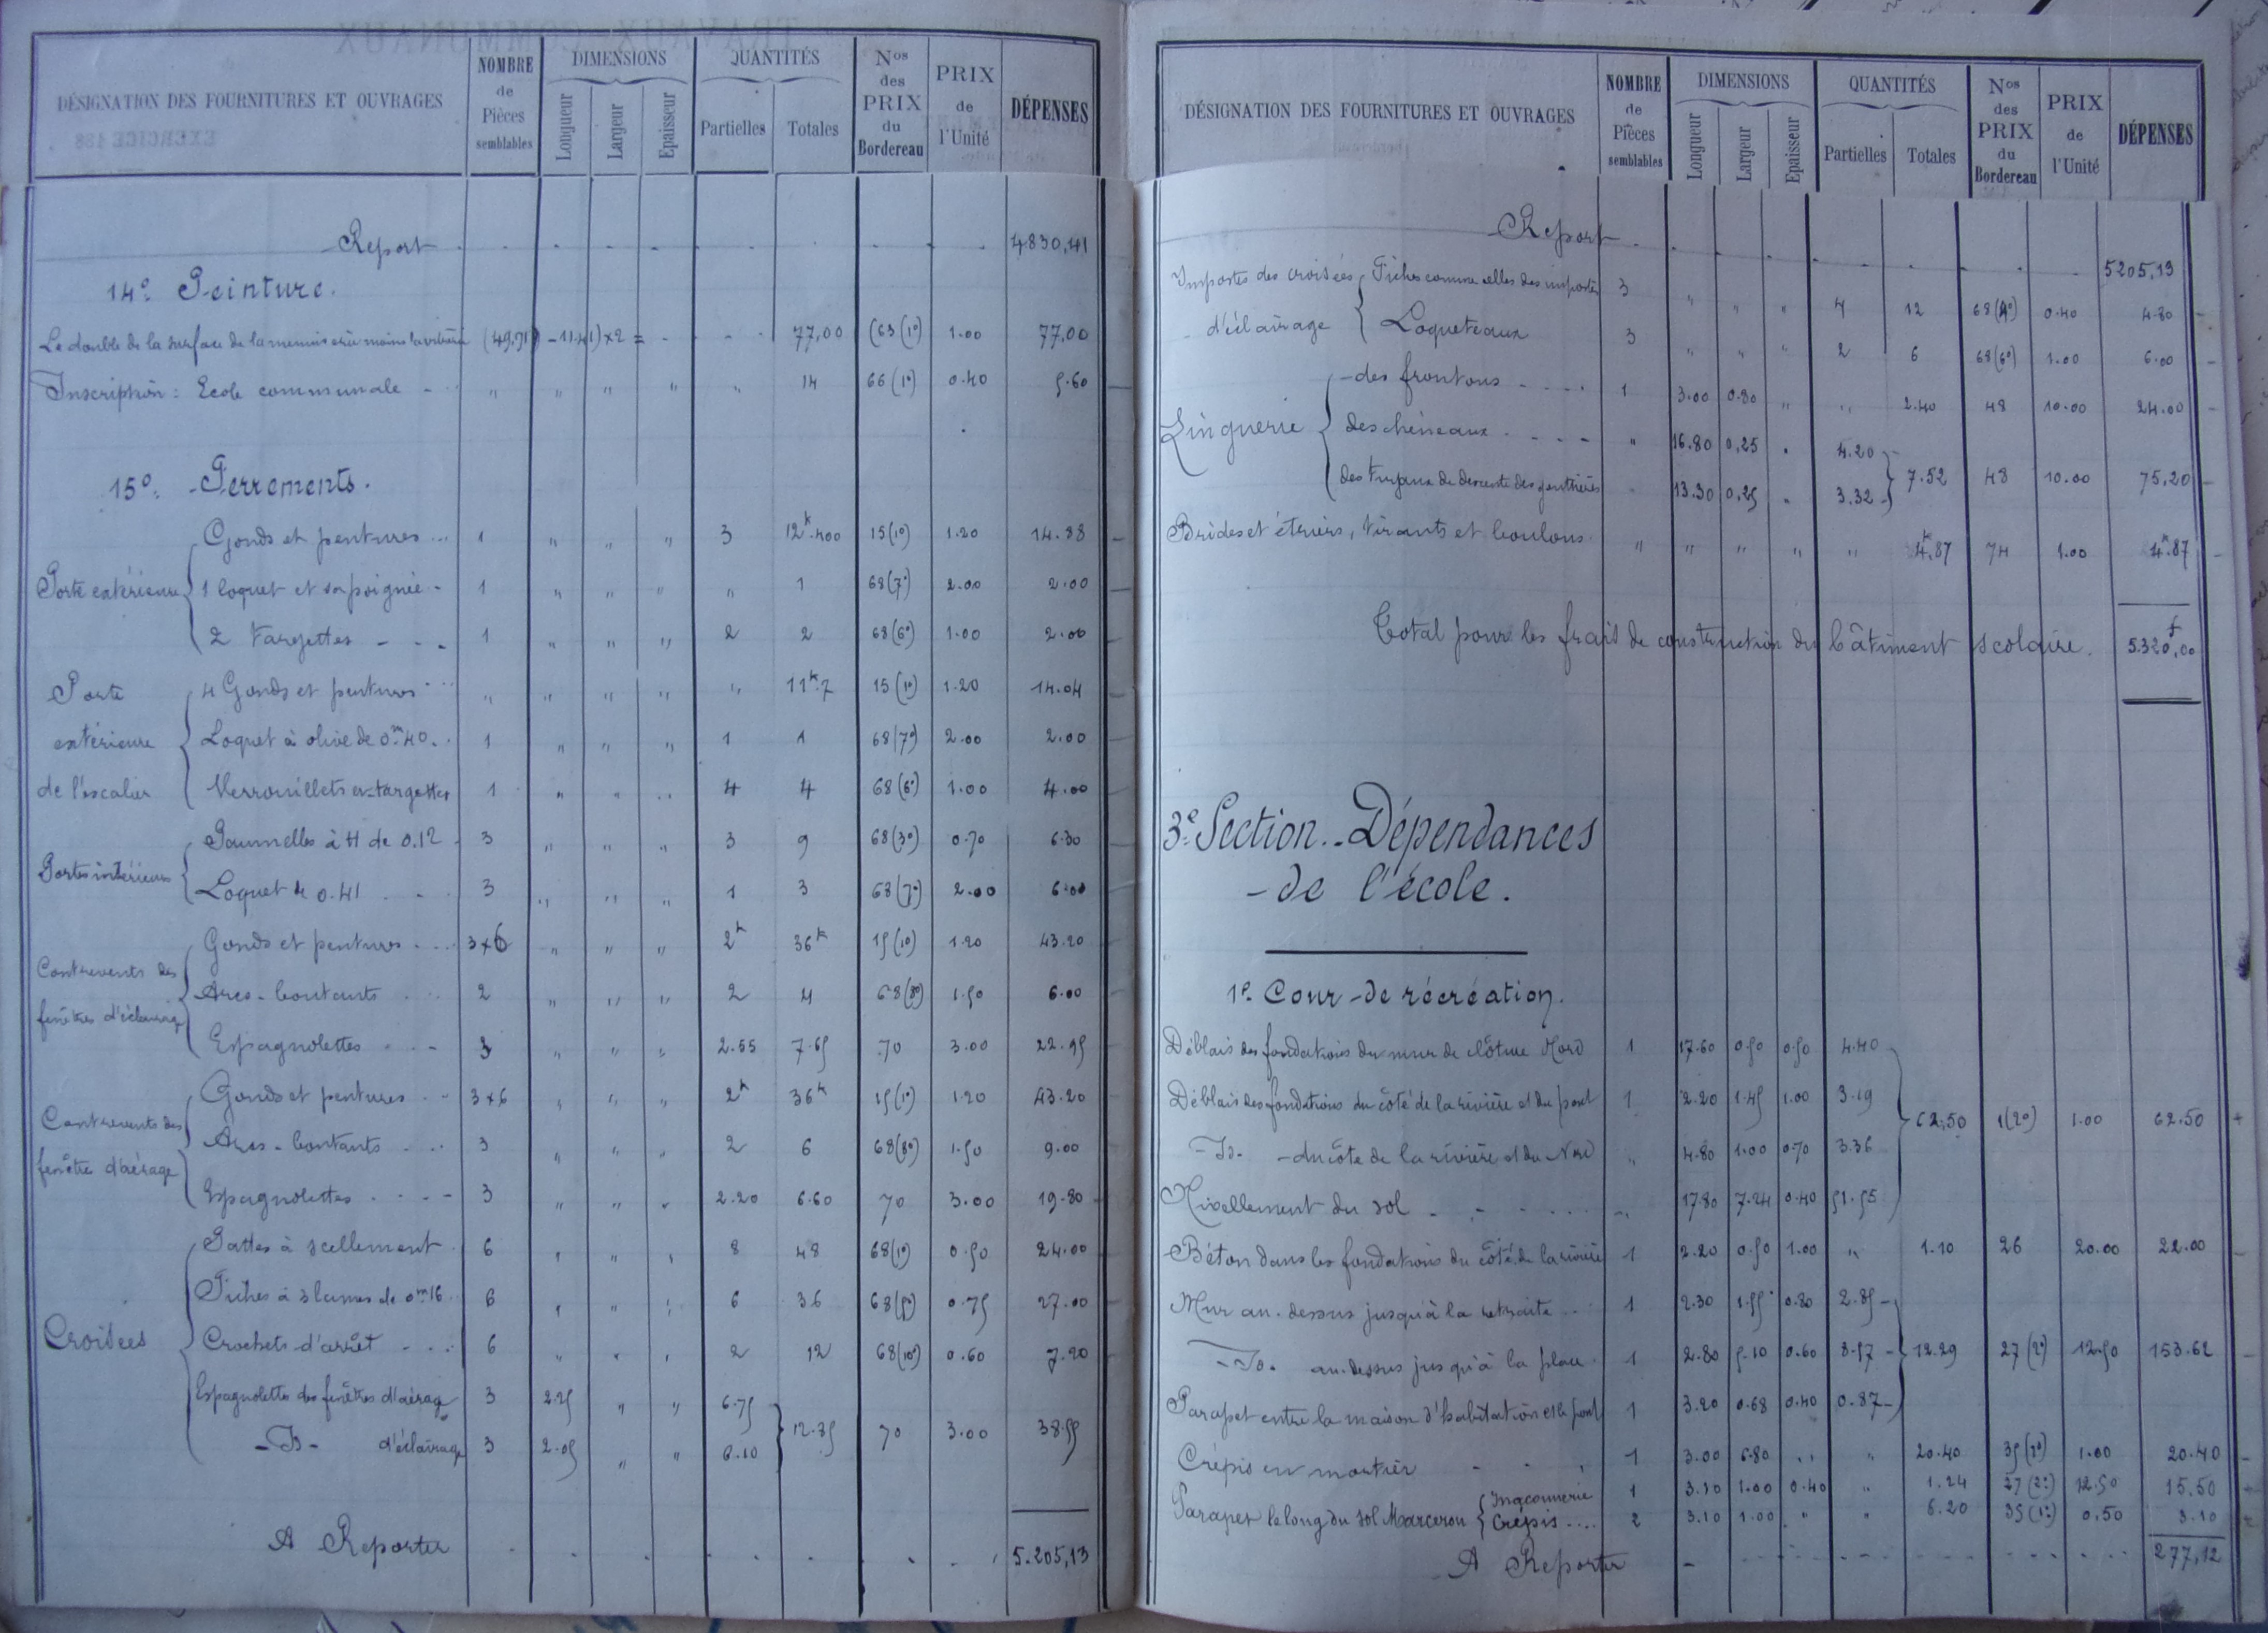 DÉSIGNATION DES FOURNITURES ET OUVRAGES NOMBRE de Pièces semblables DIMENSIONS Longueur Largeur Epaisseur QUANTITÉS Partielles Totales Nos des PRIX du Bordereau PRIX de l'Unité DÉPENSES
Report 4830,41
14º Peinture.
Le double de la surface de la menuiserie moins la vitrerie (49,91 - 11.41) × 2 = 77,00 (63 (1º) 1.00 77.00
Inscription : Ecole communale " " " " " 14 66 (1º) 0.40 5.60
15º Ferrements.
Porte extérieure
Gonds et pentures 1 " " " 3 12k.400 15 (1º) 1.20 14.88
1 loquet et sa poignée 1 " " " " 1 68 (7º) 2.00 2.00
2 Targettes 1 " " " 2 2 68 (6º) 1.00 2.00
Porte extérieure de l'escalier
4 Gonds et pentures " " " " " 11k.7 15 (1º) 1.20 14.04
Loquet à olive de 0m40. 1 " " " 1 1 68 (7º) 2.00 2.00
Verrouillets en targettes 1 " " " 4 4 68 (6º) 1.00 4.00
Portes intérieures
Paumelles à H de 0.12 3 " " " 3 9 68 (3º) 0.70 6.30
Loquet de 0.41 3 " " " 1 3 68 (7º) 2.00 6.00
Contrevents des fenêtres d'éclairage
Gonds et pentures 3×6 " " " 2k 36k 15 (1º) 1.20 43.20
Arcs-boutants 2 " " " 2 4 68 (8º) 1.50 6.00
Espagnolettes 3 " " " 2.55 7.65 70 3.00 22.95
Contrevents des fenêtre d'aérage
Gonds et pentures 3×6 " " " 2k 36k 15 (1º) 1.20 43.20
Arcs-boutants 3 " " " 2 6 68 (8º) 1.50 9.00
Espagnolettes 3 " " " 2.20 6.60 70 3.00 19.80
Croisées
Pattes à scellement 6 " " " 8 48 68 (1º) 0.50 24.00
Fiches à 3 lames de 0m16 6 " " " 6 36 68 (5º) 0.75 27.00
Crochets d'arrêt 6 " " " 2 12 68 (10º) 0.60 7.20
Espagnolettes des fenêtres d'aérage 3 2.25 " " 6.75
-Id- d'éclairage 3 2.05 " " 6.10 12.85 70 3.00 38.55
A Reporter 5.205,13
DÉSIGNATION DES FOURNITURES ET OUVRAGES NOMBRE de Pièces semblables DIMENSIONS Longueur Largeur Epaisseur QUANTITÉS Partielles Totales Nos des PRIX du Bordereau PRIX de l'Unité DÉPENSES
Report 5205,13
Impostes des croisées d'éclairage
Fiches comme celles des impostes 3 " " " 4 12 68 (4º) 0.40 4.80
Loqueteaux 3 " " " 2 6 68 (6º) 1.00 6.00
Zinguerie
des frontons 1 3.00 0.80 " " 2.40 48 10.00 24.00
des chéneaux " 16.80 0,25 " 4.20
des tuyaux de descente des gouttières " 13.30 0,25 " 3.32 7.52 48 10.00 75,20
Brides et étriers, tirants et boulons " " " " " 4k.87 74 1.00 4.87
Total pour les frais de construction du bâtiment scolaire. 5.320f,00
3e Section.. Dépendances
- de l'école.
1º Cour de récréation.
Déblais des fondations du mur de clôture Nord 1 17.60 0.50 0.50 4.40
Déblais des fondations du côté de la rivière et du pont 1 2.20 1.45 1.00 3.19
-Id- du côté de la rivière et du Nord " 4.80 1.00 0.70 3.36
Nivellement du sol " 17.80 7.24 0.40 51.55 62.50 1 (2º) 1.00 62.50
Béton dans les fondations du côté de la rivière 1 2.20 0.50 1.00 " 1.10 26 20.00 22.00
Mur au-dessus jusqu'à la retraite 1 2.30 1.55 0.80 2.85
-Id- au-dessus jusqu'à la place 1 2.80 5.10 0.60 8.57 12.29 27 (2º) 12.50 153.62
Parapet entre la maison d'habitation et le pont 1 3.20 0.68 0.40 0.87
Crépis en mortier 1 3.00 6.80 " " 20.40 35 (3º) 1.00 20.40
Parapet le long du sol Marceron
Maçonnerie 1 3.10 1.00 0.40 " 1.24 27 (2º) 12.50 15.50
Crépis 2 3.10 1.00 " " 6.20 35 (1º) 0.50 3.10
A Reporter 277,12